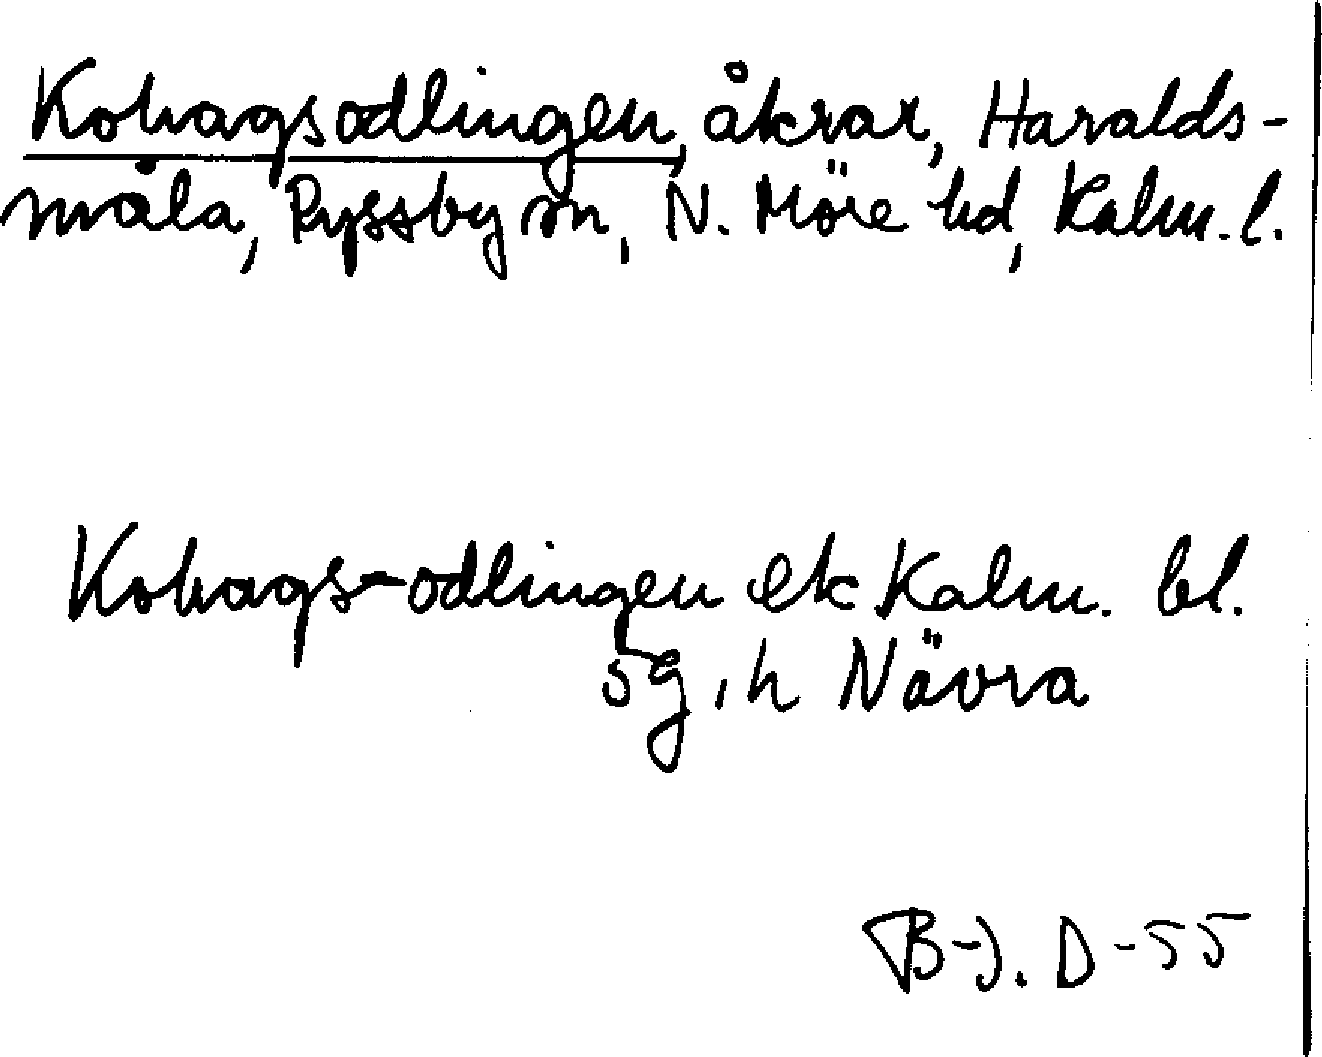 Kohagsodlingen, åkrar, Haralds-
måla, Ryssby sn, N. Möre hd, Kalm. l.
Kohags-odlingen ek Kalm. bl.
5g, h Nävra
B-J. D-55